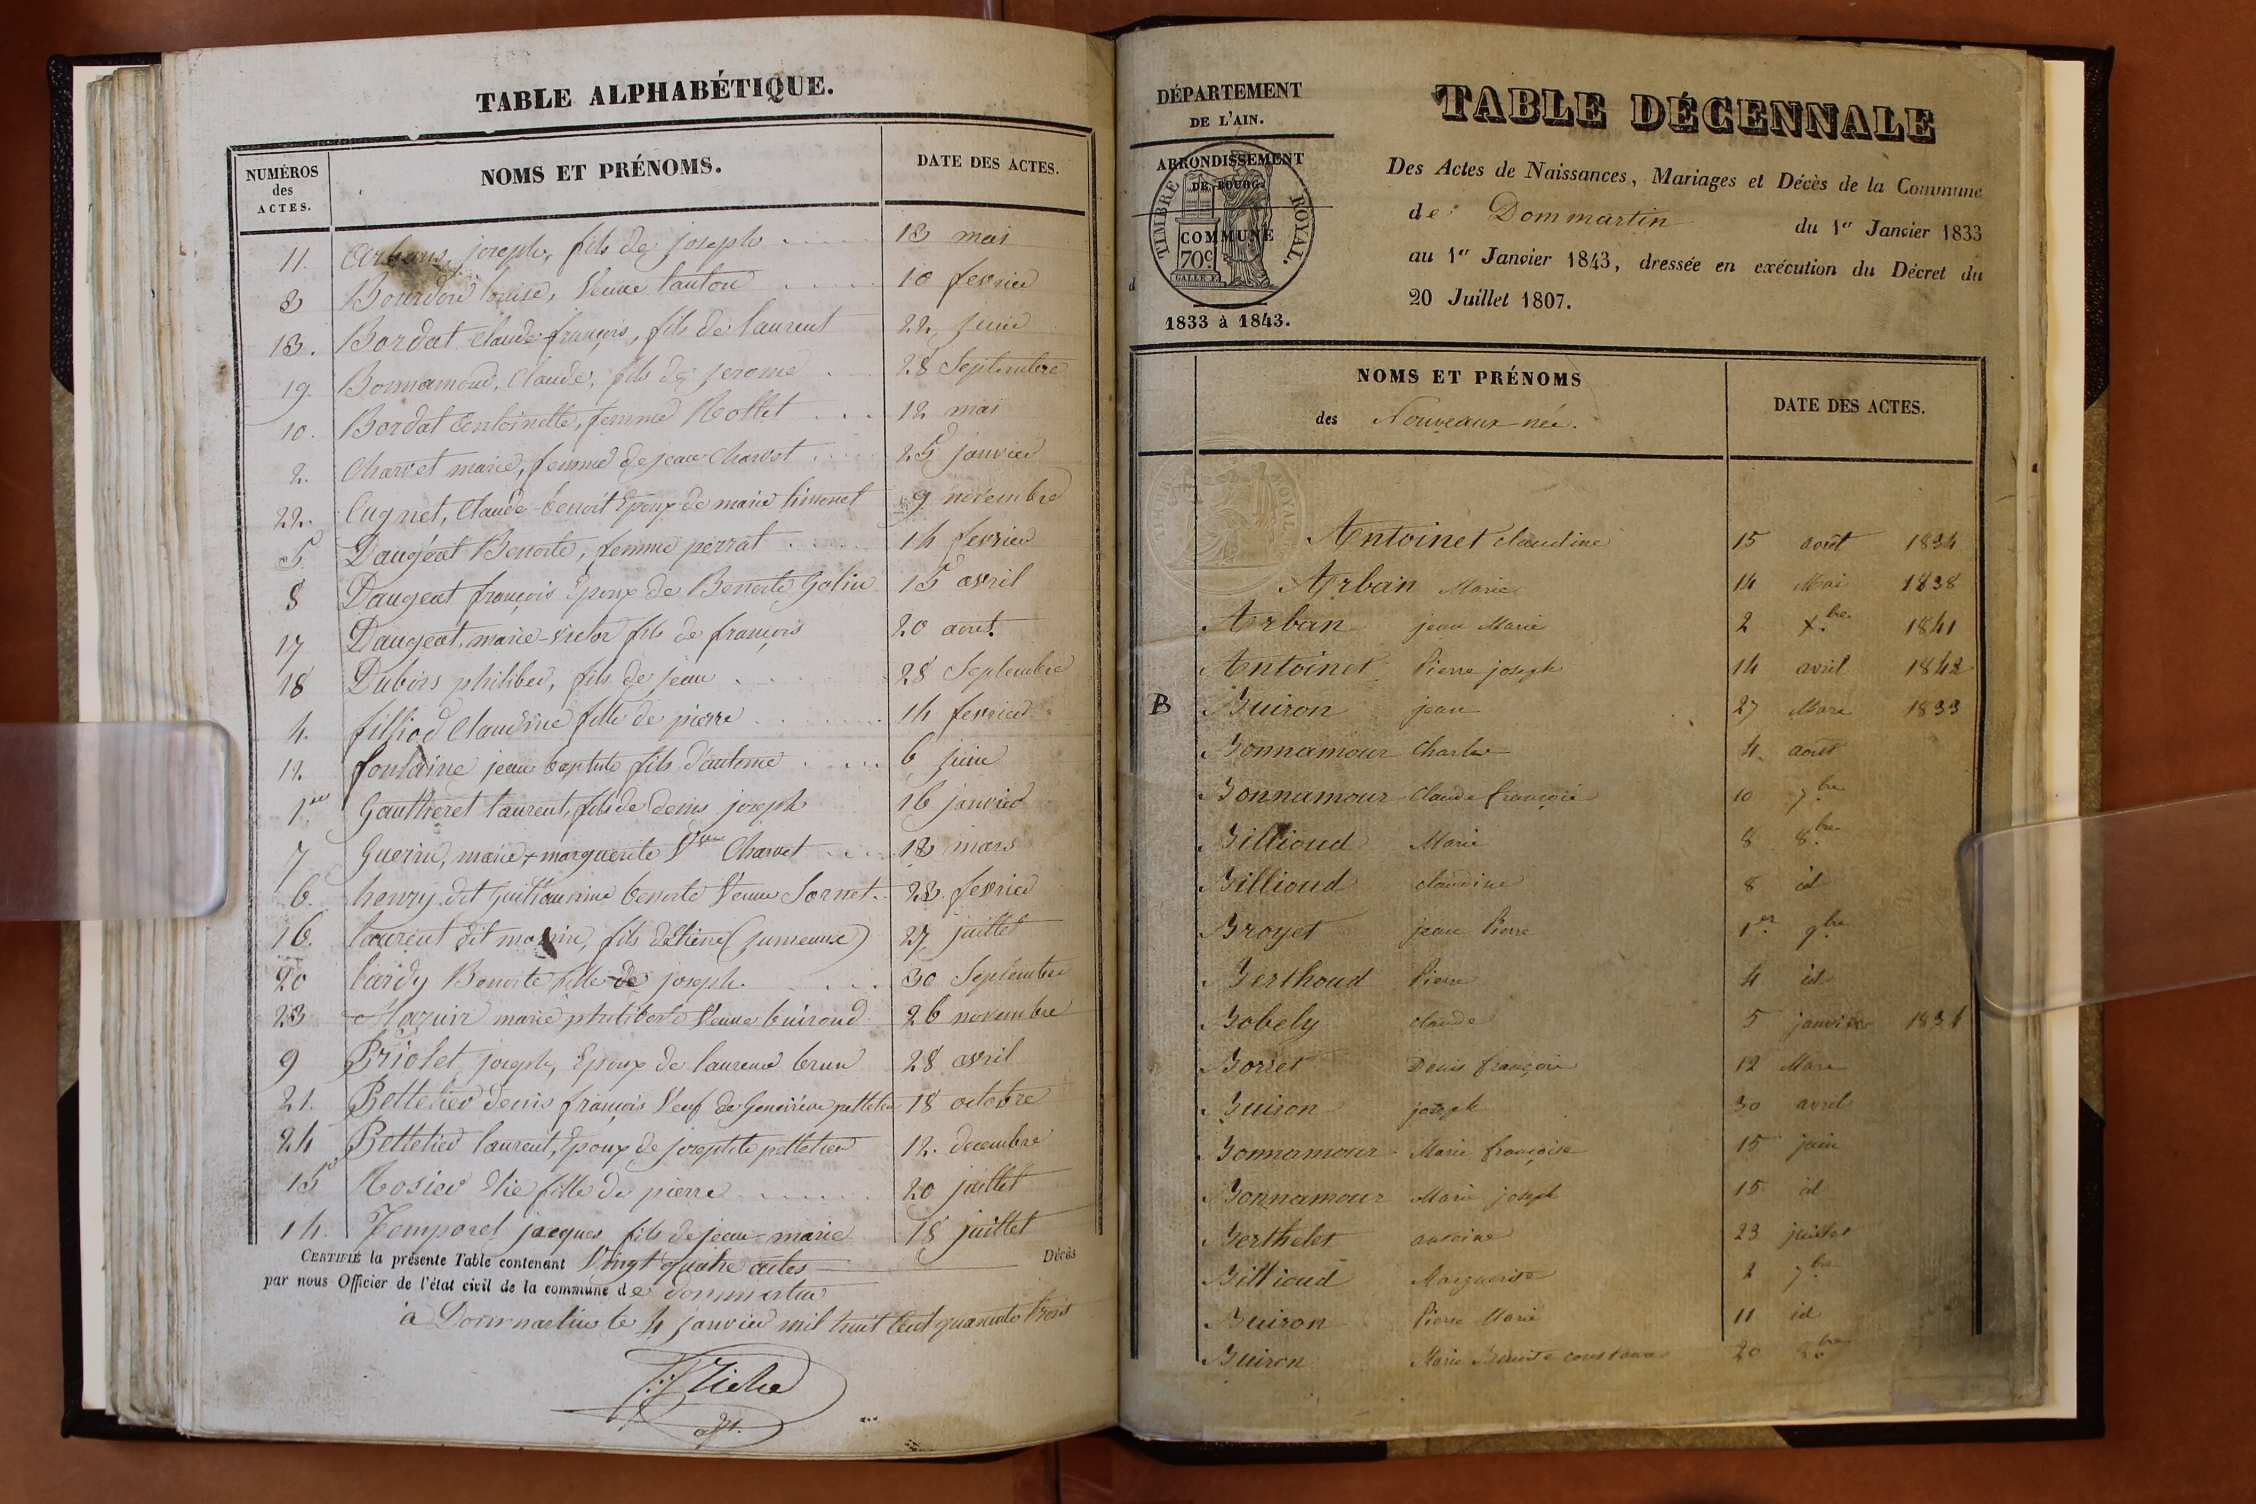 TABLE ALPHABÉTIQUE.
NUMÉROS des ACTES. NOMS ET PRÉNOMS. DATE DES ACTES.
11. joseph, fils de joseph 13 mai
3 Bourdon louise, Veuve 10 fevrier
13. Bordat Claude-françois, fils de laurent 22 juin
19. Bonnamour, Claude, fils de jerome 28 Septembre
10. Bordat antoinette, femme Rollet 12 mai
2. Charvet marie, femme de jean Charvet 25 janvier
22. Cugnet, Claude-benoit Epoux de marie 9 novembre
5. Daugeat Benoite, femme perrat 14 fevrier
8 Daugeat françois Epoux de Benoite 15 avril
17 Daugeat, marie-victor fils de françois 20 aout.
18 Dubois philiber, fils de jean 28 Septembre
4. filliod Claudine fille de pierre 14 fevrier
12. fontaine jean baptiste fils d'antoine 6 juin
1er Gautheret laurent, fils de denis joseph 16 janvier
7 Guerin, marie-marguerite Vve Charvet 13 mars
6. henry dit Guillaumine benoite Veuve Sornet. 23 fevrier
16. laurent dit fils detienne (jumeaux) 27 juillet
20 lardy Benoite fille de joseph. 30 Septembre
23 Mazuir marie philiberte Veuve buiroud 26 novembre
9 Briolet, joseph, Epoux de laurence brun 28 avril
21. Pelletier denis françois Veuf de Genevieve pelletier 18 octobre
24 Pelletier laurent, Epoux de josephte pelletier 12. decembre
15 Rosier fille de pierre 20 juillet
14. Temporel jacques fils de jean-marie 18 juillet
CERTIFIÉ la présente Table contenant Vingt quatre actes Décès
par nous Officier de l'état civil de la commune de dommartin
à Dommartin le 4 janvier mil huit Cent quarante trois
DÉPARTEMENT
DE L'AIN.
ARRONDISSEMENT
DE BOURG.
TIMBRE ROYAL.
COMMUNE
70c.
1833 à 1843.
TABLE DÉCENNALE
Des Actes de Naissances, Mariages et Décès de la Commune
de Dommartin du 1er Janvier 1833
au 1er Janvier 1843, dressée en exécution du Décret du
20 Juillet 1807.
NOMS ET PRÉNOMS
des Nouveaux née. DATE DES ACTES.
Antoinet claudine 15 août 1834
Arban Marie 14 Mai 1838
Arban jean Marie 2 Xbre 1841
Antoinet Pierre joseph 14 avril 1842
B Buiron jean 27 Mars 1833
Bonnamour Charles 4 août
Bonnamour Claude françois 10 7bre
Billioud Marie 8 8bre
Billioud claudine 8 id
Broyet jean Pierre 1er 9bre
Berthoud Pierre 4 id
Bobely claude 5 janvier 1834
Borret Denis françois 12 Mars
Buiron joseph 30 avril
Bonnamour Marie françoise 15 juin
Bonnamour Marie joseph 15 id
Berthelet antoine 23 juillet
Billioud Marguerite 2 7bre
Buiron Pierre Marie 11 id
Buiron Marie Benoite constance 20 8bre